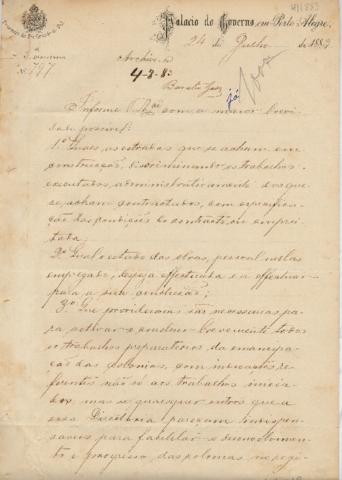 Palacio do Governo, em Porto Alegre,
24 de Julho de 1883
Nº 741
Archive-se
4-8-83
já
Informe V. Sª com a maior brevi-
dade possivel:
1º Quaes as estradas que se acham em
construcção, discriminando os trabalhos
executados administrativamente e os que
se acham contractados, com especifica-
ção das condições do contracto ou emprei-
tada;
2º Qual o estado das obras, pessoal nellas
empregado, despeza effectuada e a effectuar
para a sua conclusão;
3º Que providencias são necessarias pa-
ra activar e concluir brevemente todos
os trabalhos preparatorios da emancipa-
ção das colonias, com indicações re-
ferentes não só aos trabalhos inicia-
dos, mas se quaesquer outros que a
essa Directoria pareçam indispen-
saveis para facilitar o desenvolvimen-
to e progresso das colonias no regi-